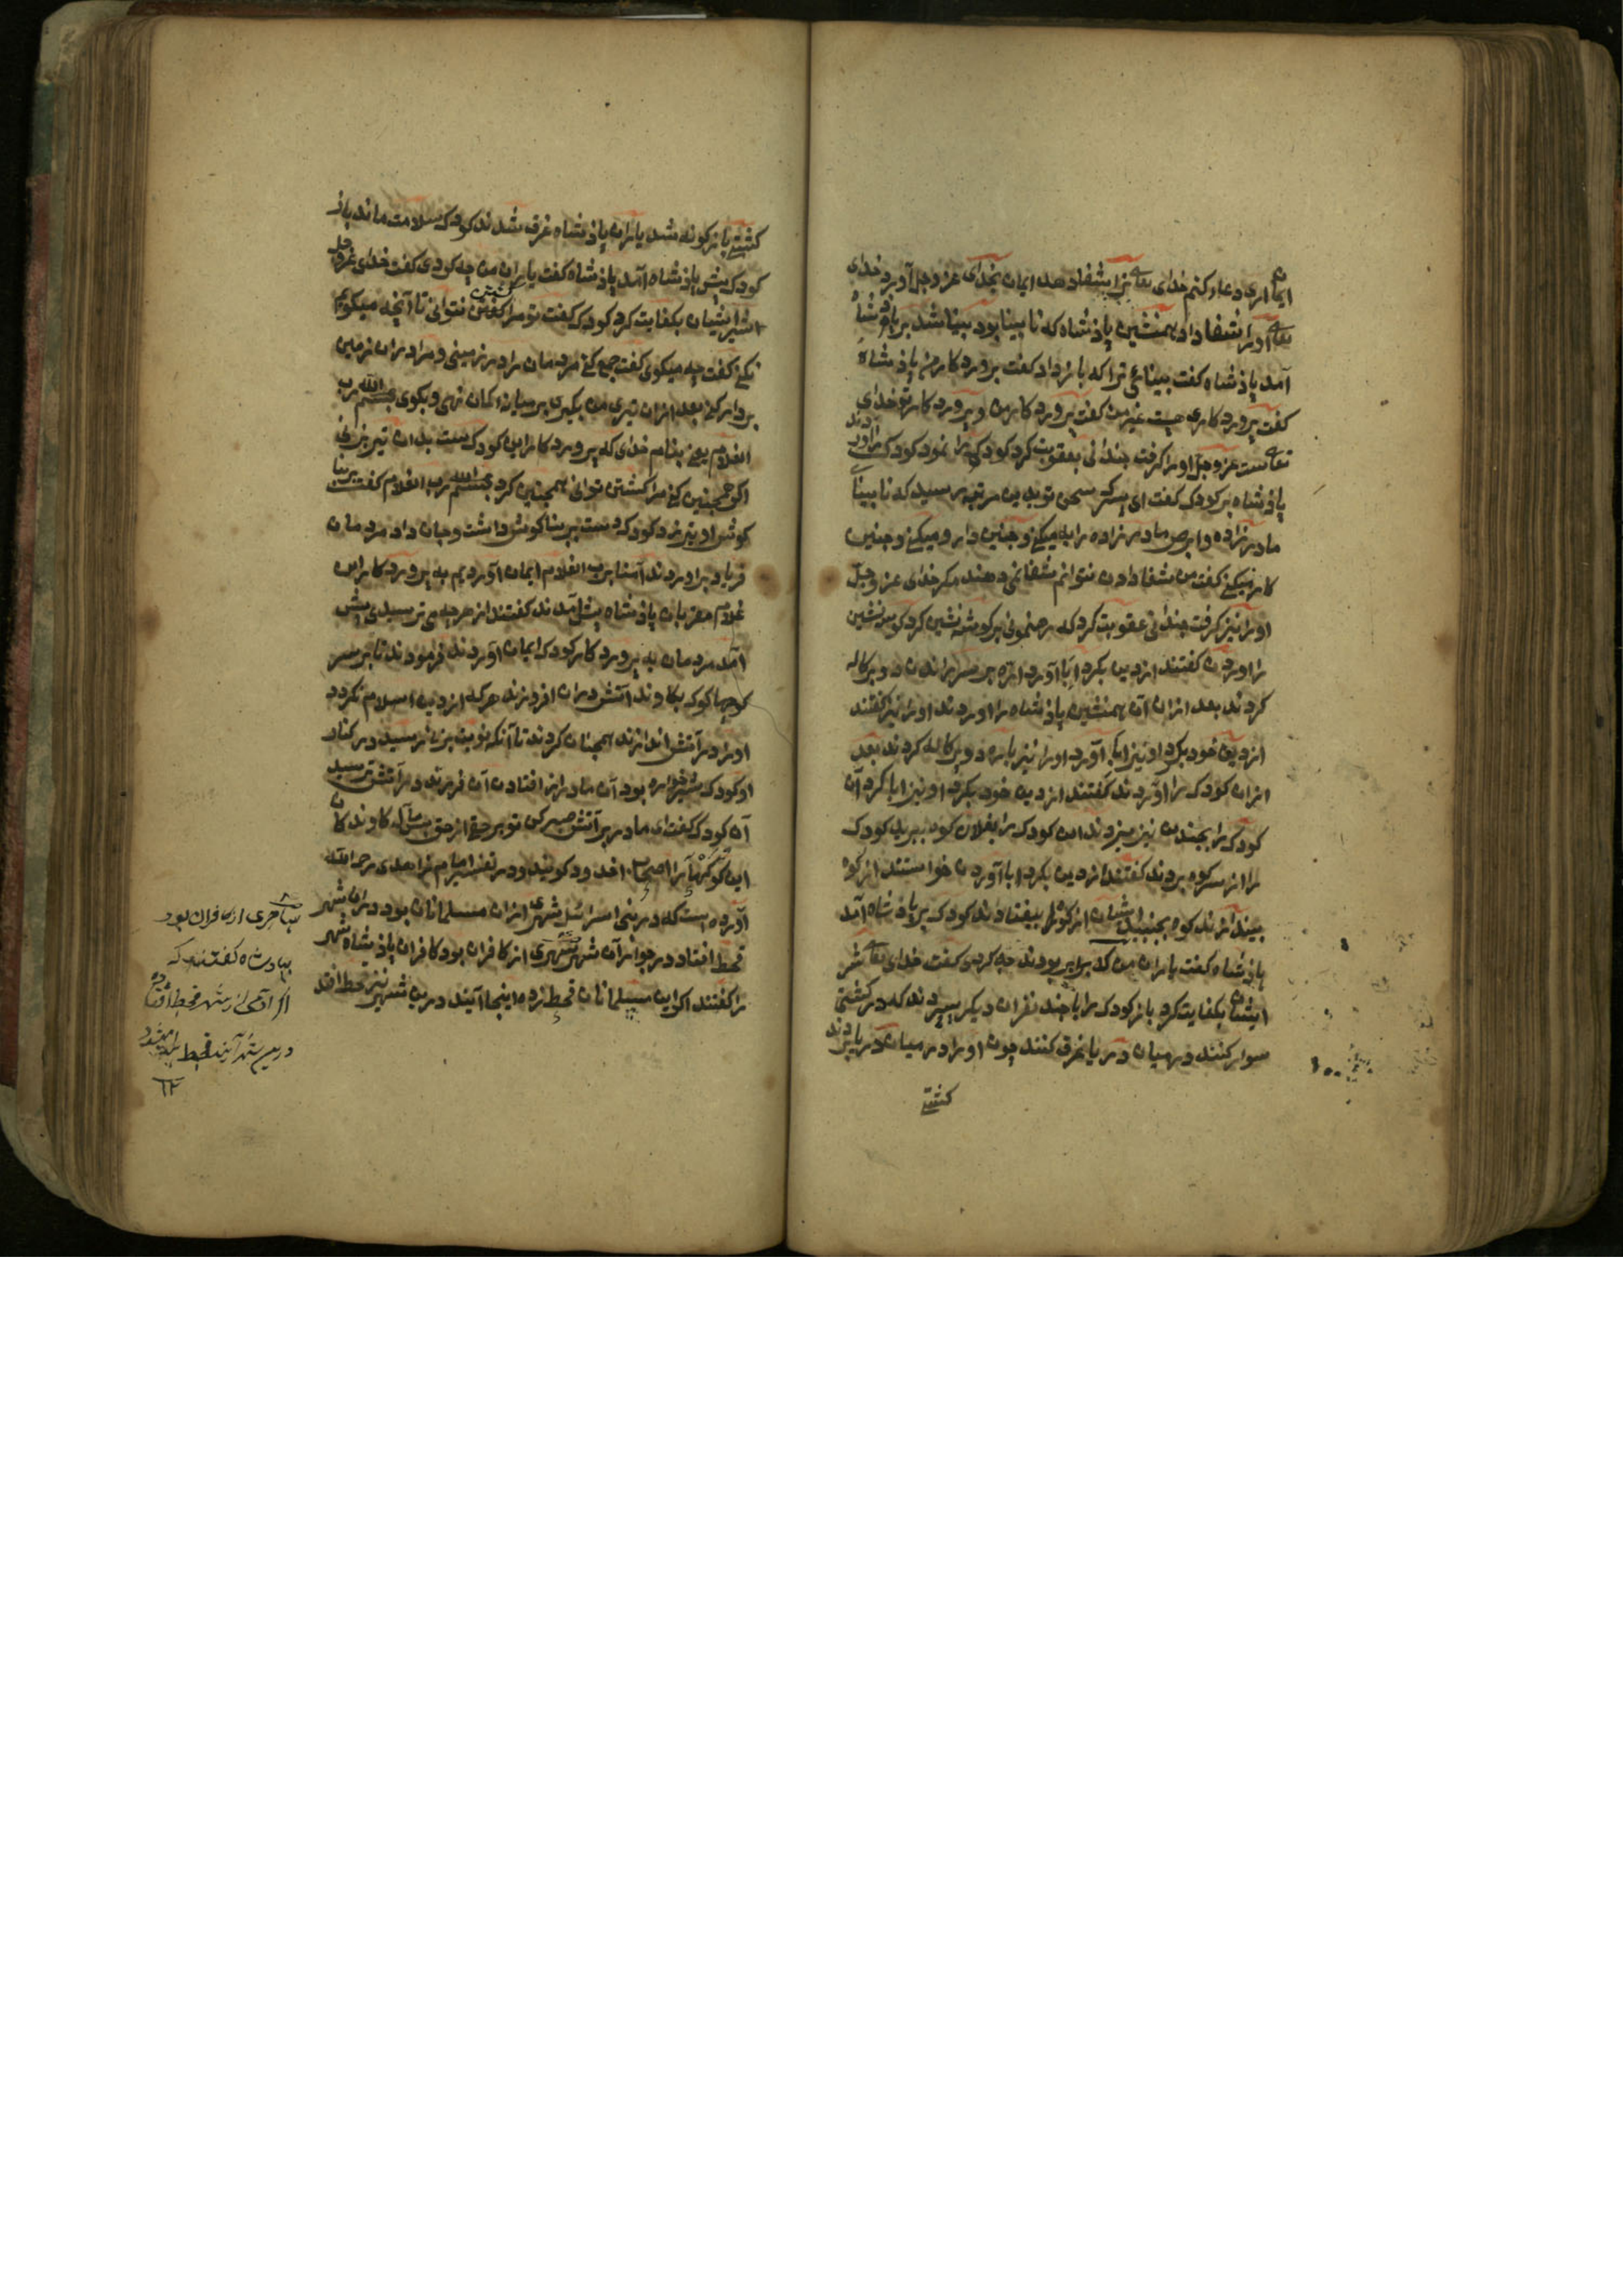 ایمان اری دعا کنم خدای تعالی ترا شفا دهد ایمان بخدای عز و جل آورد خدای
تعالی اورا شفا داد همنشین پاذشاه که نابینا بود بینا شد بر پاذشاه
آمد پاذشاه کفت بینائی ترا که باز داد کفت پروردکار من پاذشاه
کفت پروردکاری جیست غیر من کفت پروردکار من و پروردکار تو خدای
تعالی است عز و جل اورا کرفت جندانی بعقوبت کرد کودک را نمود کودک را آوردند
پاذشاه بر کودک کفت ای پسرک سحر تو بدین مرتبه رسید که نابینا
مادر زاده و ابرص مادر زاده را به میکنی و جنین دارو میکنی و جنین
کار میکنی کفت من شفا دادن نتوانم شفا نمی دهند مکر خدای عز و جل
اورا نیز کرفت جندانی عقوبت کرد که رهنمونی بر کوشه نشین کرد کوشه نشین
را اوردن کفتند از دین بکرد ابا آورد ازه بر سر راندند دو برکاله
کردند بعد ازان آن همنشین پاذشاه را اوردند اورا نیز کفتند
از دین خود بکرد او نیز ابا آورد اورا نیز باره دو برکاله کردند بعد
ازان کودک را آوردند کفتند از دین خود بکرد او نیز ابا کرد آن
کودک را بجندین نیز سپردند این کودک را بفلان کوه ببرید کودک
را از سر کوه بردند کفتند از دین بکرد ابا آورد خواستند از کوه
بیندازند کوه بجنبید ایشان از کوه بیفتادند کودک بر پاذشاه آمد
پاذشاه کفت یاران من که برابر بودند جه کردی کفت خدای تعالی شر
ایشان بکفایت کرد باز کودک را با جند نفران دیکر سپردند که در کشتی
سوار کنند در میان دریا غرق کنند چون اورا در میان دریا بردند
کشتی
کشتی باز کونه شد یاران پاذشاه غرق شدند کودک سلامت ماند باز
کودک پیش پاذشاه آمد پاذشاه کفت یاران من چه کودی کفت خدای عز و جل
شر ایشان بکفایت کرد کودک کفت تو مرا کشتن نتوانی تا آنچه میکویم
نکنی کفت چه میکوی کفت جمع کنی مردمان را در زمینی و مرا دران زمین
بردار کنی بعد ازان تیری من بکیری بر میان کمان نهی و بکوی بسم الله رب
الغلام یعنی بنام خدای که پروردکار این کودک ست بدان تیر بزنی
اکر همچنین کنی مرا کشتن توانی همچنین کرد بسم الله رب الغلام کفت بر بنا
کوش او تیر زد کودک دست بر بناکوش داشت و جان داد مردمان
فریاد براوردند آمنا برب الغلام ایمان آوردیم به پروردکار این
غلام مقربان پاذشاه پیش آمدند کفتند از هر چه می ترسیدی پیش
آمد مردمان به پروردکار کودک ایمان آوردند فرمودند تا بر سر
کوچها کوکه بکاوند آتش دران افروزند هر که از دین اسلام نکردد
اورا در آتش اندازند همچنان کردند تا آنکه نوبت بزنی رسید در کنار
او کودک شیرخواره بود آن مادر از افتادن آن فرزند در آتش ترسید
آن کودک کفت ای مادر بر آتش صبر کن تو بر حقی از حق کاوندکان
این کوکها را اصحاب اخدود کویند و در تفسیر امام زاهدی رحمه الله
آورده است که در بنی اسرائیل شهری ازان مسلمانان بود دران شهر
قحط افتاد در جوار آن شهر شهری از کافران بود کافران پاذشاه شهر
را کفتند اکر این مسلمانان قحط زده اینجا آیند درین شهر نیز قحط افتد
ساحری از کافران بود
بپادشاه کفتند که
در شهر قحط افتاده
درین شهر آیند قحط
۱۲